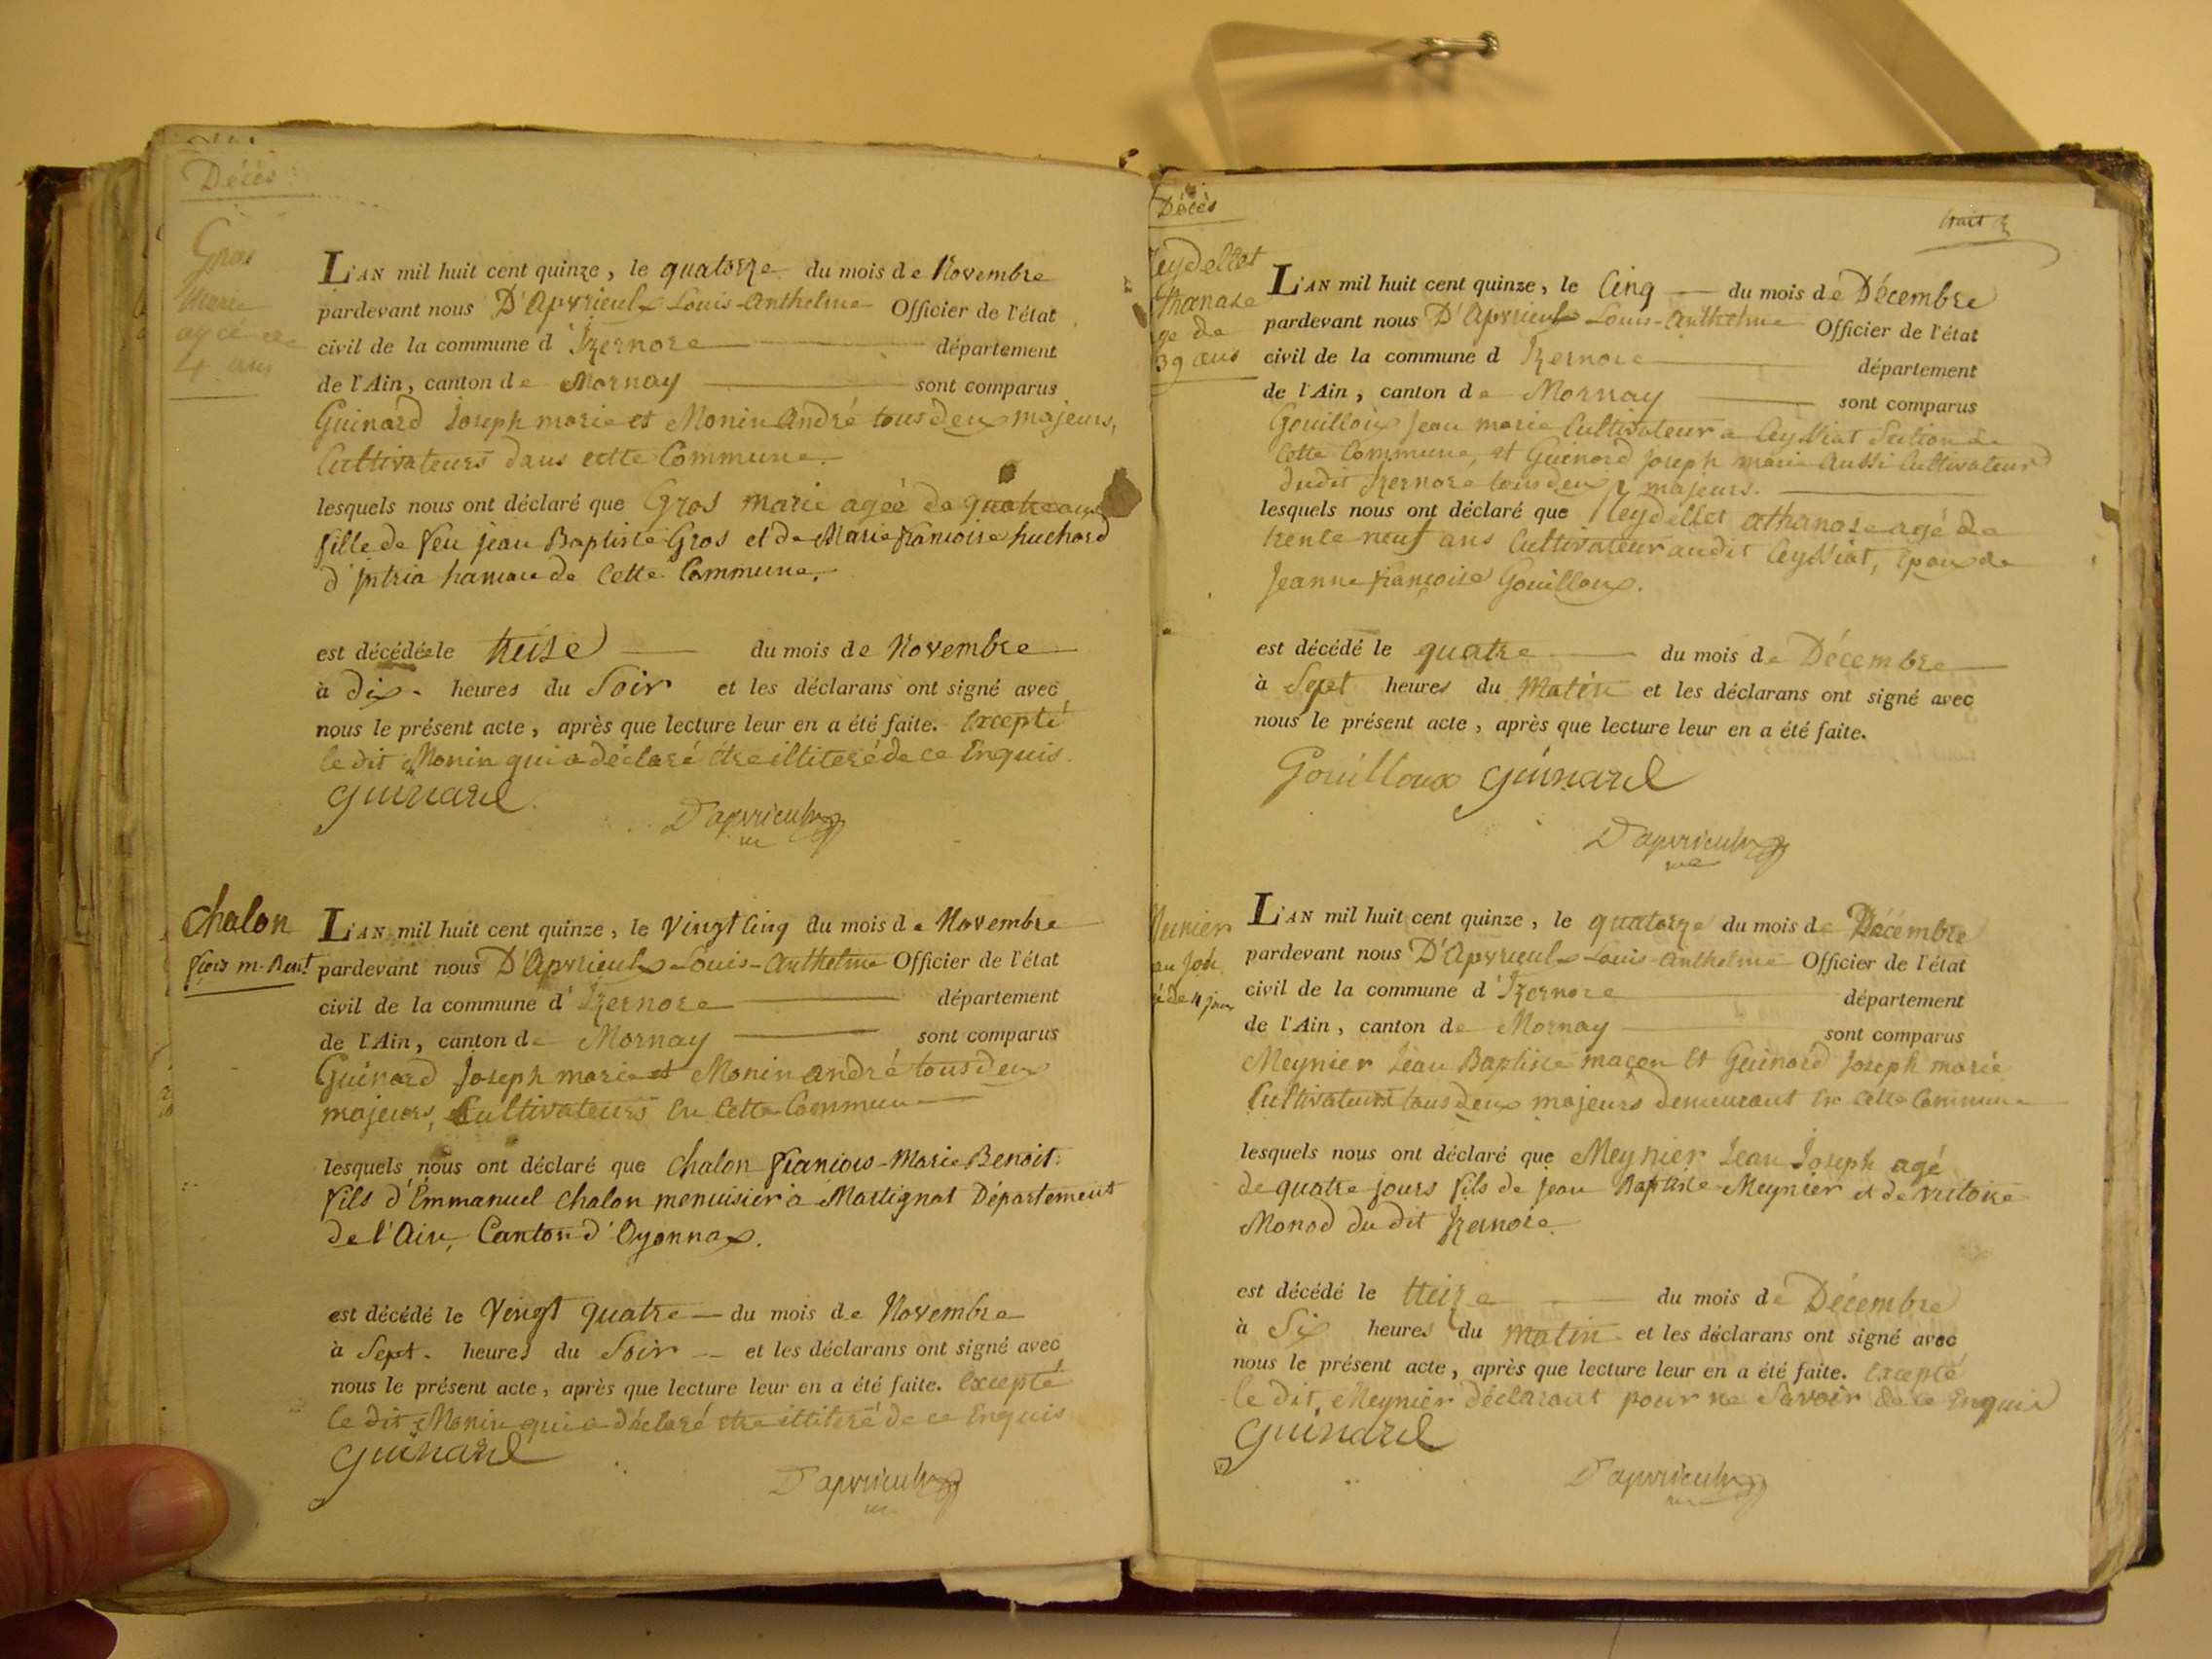 Décès
Gros
Marie
agée de
4 ans
L'AN mil huit cent quinze, le quatorze du mois de Novembre
pardevant nous D'Apvrieulx Louis-Anthelme Officier de l'état
civil de la commune d'Izernore département
de l'Ain, canton de Mornay sont comparus
Guinard Joseph marie et Monin André tous deux majeurs,
Cultivateurs dans cette Commune.
lesquels nous ont déclaré que Gros marie agée de quatre ans
fille de feu jean Baptiste Gros et de Marie françoise huchard
d'intria hameau de Cette Commune.
est décédée le treise du mois de Novembre
à dix heures du Soir et les déclarans ont signé avec
nous le présent acte, après que lecture leur en a été faite. Excepté
le dit Monin qui a déclaré être illiteré de ce Enquis.
Guinard
D'apvrieulx
Chalon
L'AN mil huit cent quinze, le Vingt Cinq du mois de Novembre
fçois m. Bent pardevant nous D'Apvrieulx Louis-Anthelme Officier de l'état
civil de la commune d'Izernore département
de l'Ain, canton de Mornay sont comparus
Guinard Joseph marie et Monin André tous deux
majeurs, Cultivateurs En Cette Commune
lesquels nous ont déclaré que Chalon François-Marie Benoit.
fils d'Emmanuel Chalon menuisier à Martignat Département
de l'Ain, Canton d'Oyonnax.
est décédé le Vingt quatre du mois de Novembre
à Sept heures du Soir et les déclarans ont signé avec
nous le présent acte, après que lecture leur en a été faite. Excepté
le dit Monin qui a déclaré être illiteré de ce Enquis
Guinard
D'apvrieulx
Décès
huit
eydellet
thanase
ge de
39 ans
L'AN mil huit cent quinze, le Cinq du mois de Décembre
pardevant nous D'Apvrieulx Louis-Anthelme Officier de l'état
civil de la commune d Izernore département
de l'Ain, canton de Mornay sont comparus
Gouilloux Jean marie Cultivateur a Ceyssiat Section de
Cette Commune, et Guinard joseph marie Aussi Cultivateur
dudit Izernore tous deux majeurs.
lesquels nous ont déclaré que Reydellet athanase agé de
trente neuf ans Cultivateur audit Ceyssiat, Epoux de
Jeanne françoise Gouilloux.
est décédé le quatre du mois de Décembre
à Sept heures du Matin et les déclarans ont signé avec
nous le présent acte, après que lecture leur en a été faite.
Gouilloux Guinard
D'apvrieulx
eunier
an Jos.
é de 4 jours
L'AN mil huit cent quinze, le quatorze du mois de Décembre
pardevant nous D'Apvrieulx Louis-Anthelme Officier de l'état
civil de la commune d'Izernore département
de l'Ain, canton de Mornay sont comparus
Meynier Jean Baptiste maçon Et Guinard Joseph marie
Cultivateurs tous deux majeurs demeurant En Cette Commune
lesquels nous ont déclaré que Meynier Jean Joseph agé
de quatre jours fils de jean Baptiste Meynier et de victoire
Monod du dit Izernore.
est décédé le treize du mois de Décembre
à Six heures du matin et les déclarans ont signé avec
nous le présent acte, après que lecture leur en a été faite. Excepté
le dit Meynier déclarant pour ne Savoir de ce Enquis
Guinard
D'apvrieulx